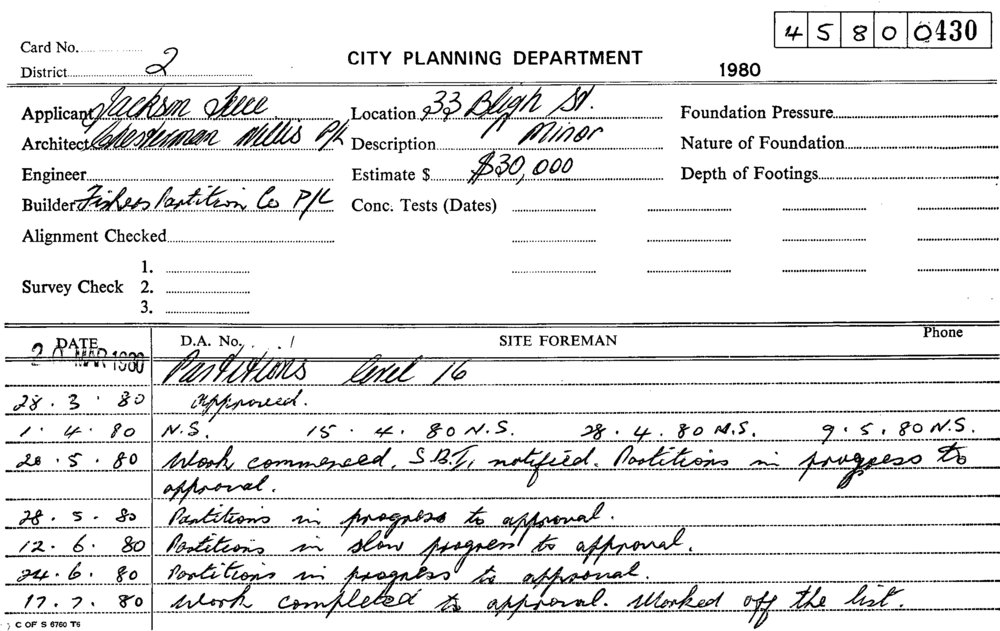 45800430
Card No.
District 2
CITY PLANNING DEPARTMENT
1980
Applicant Jackson
Location 33 Bligh St.
Foundation Pressure
Architect Chesterman Willis P/L
Description Minor
Nature of Foundation
Engineer
Estimate $ $30,000
Depth of Footings
Builder Fishers Partition Co P/L
Conc. Tests (Dates)
Alignment Checked
Survey Check
1.
2.
3.
DATE D.A. No. / SITE FOREMAN Phone
MAR 1980 Partitions level 16
28.3.80 Approved.
1.4.80 N.S. 15.4.80 N.S. 28.4.80 N.S. 9.5.80 N.S.
20.5.80 Work commenced, S.B.I. notified. Partitions in progress to
approval.
28.5.80 Partitions in progress to approval.
12.6.80 Partitions in slow progress to approval.
24.6.80 Partitions in progress to approval.
17.7.80 Work completed to approval. Marked off the list.
C OF S 6760 T6